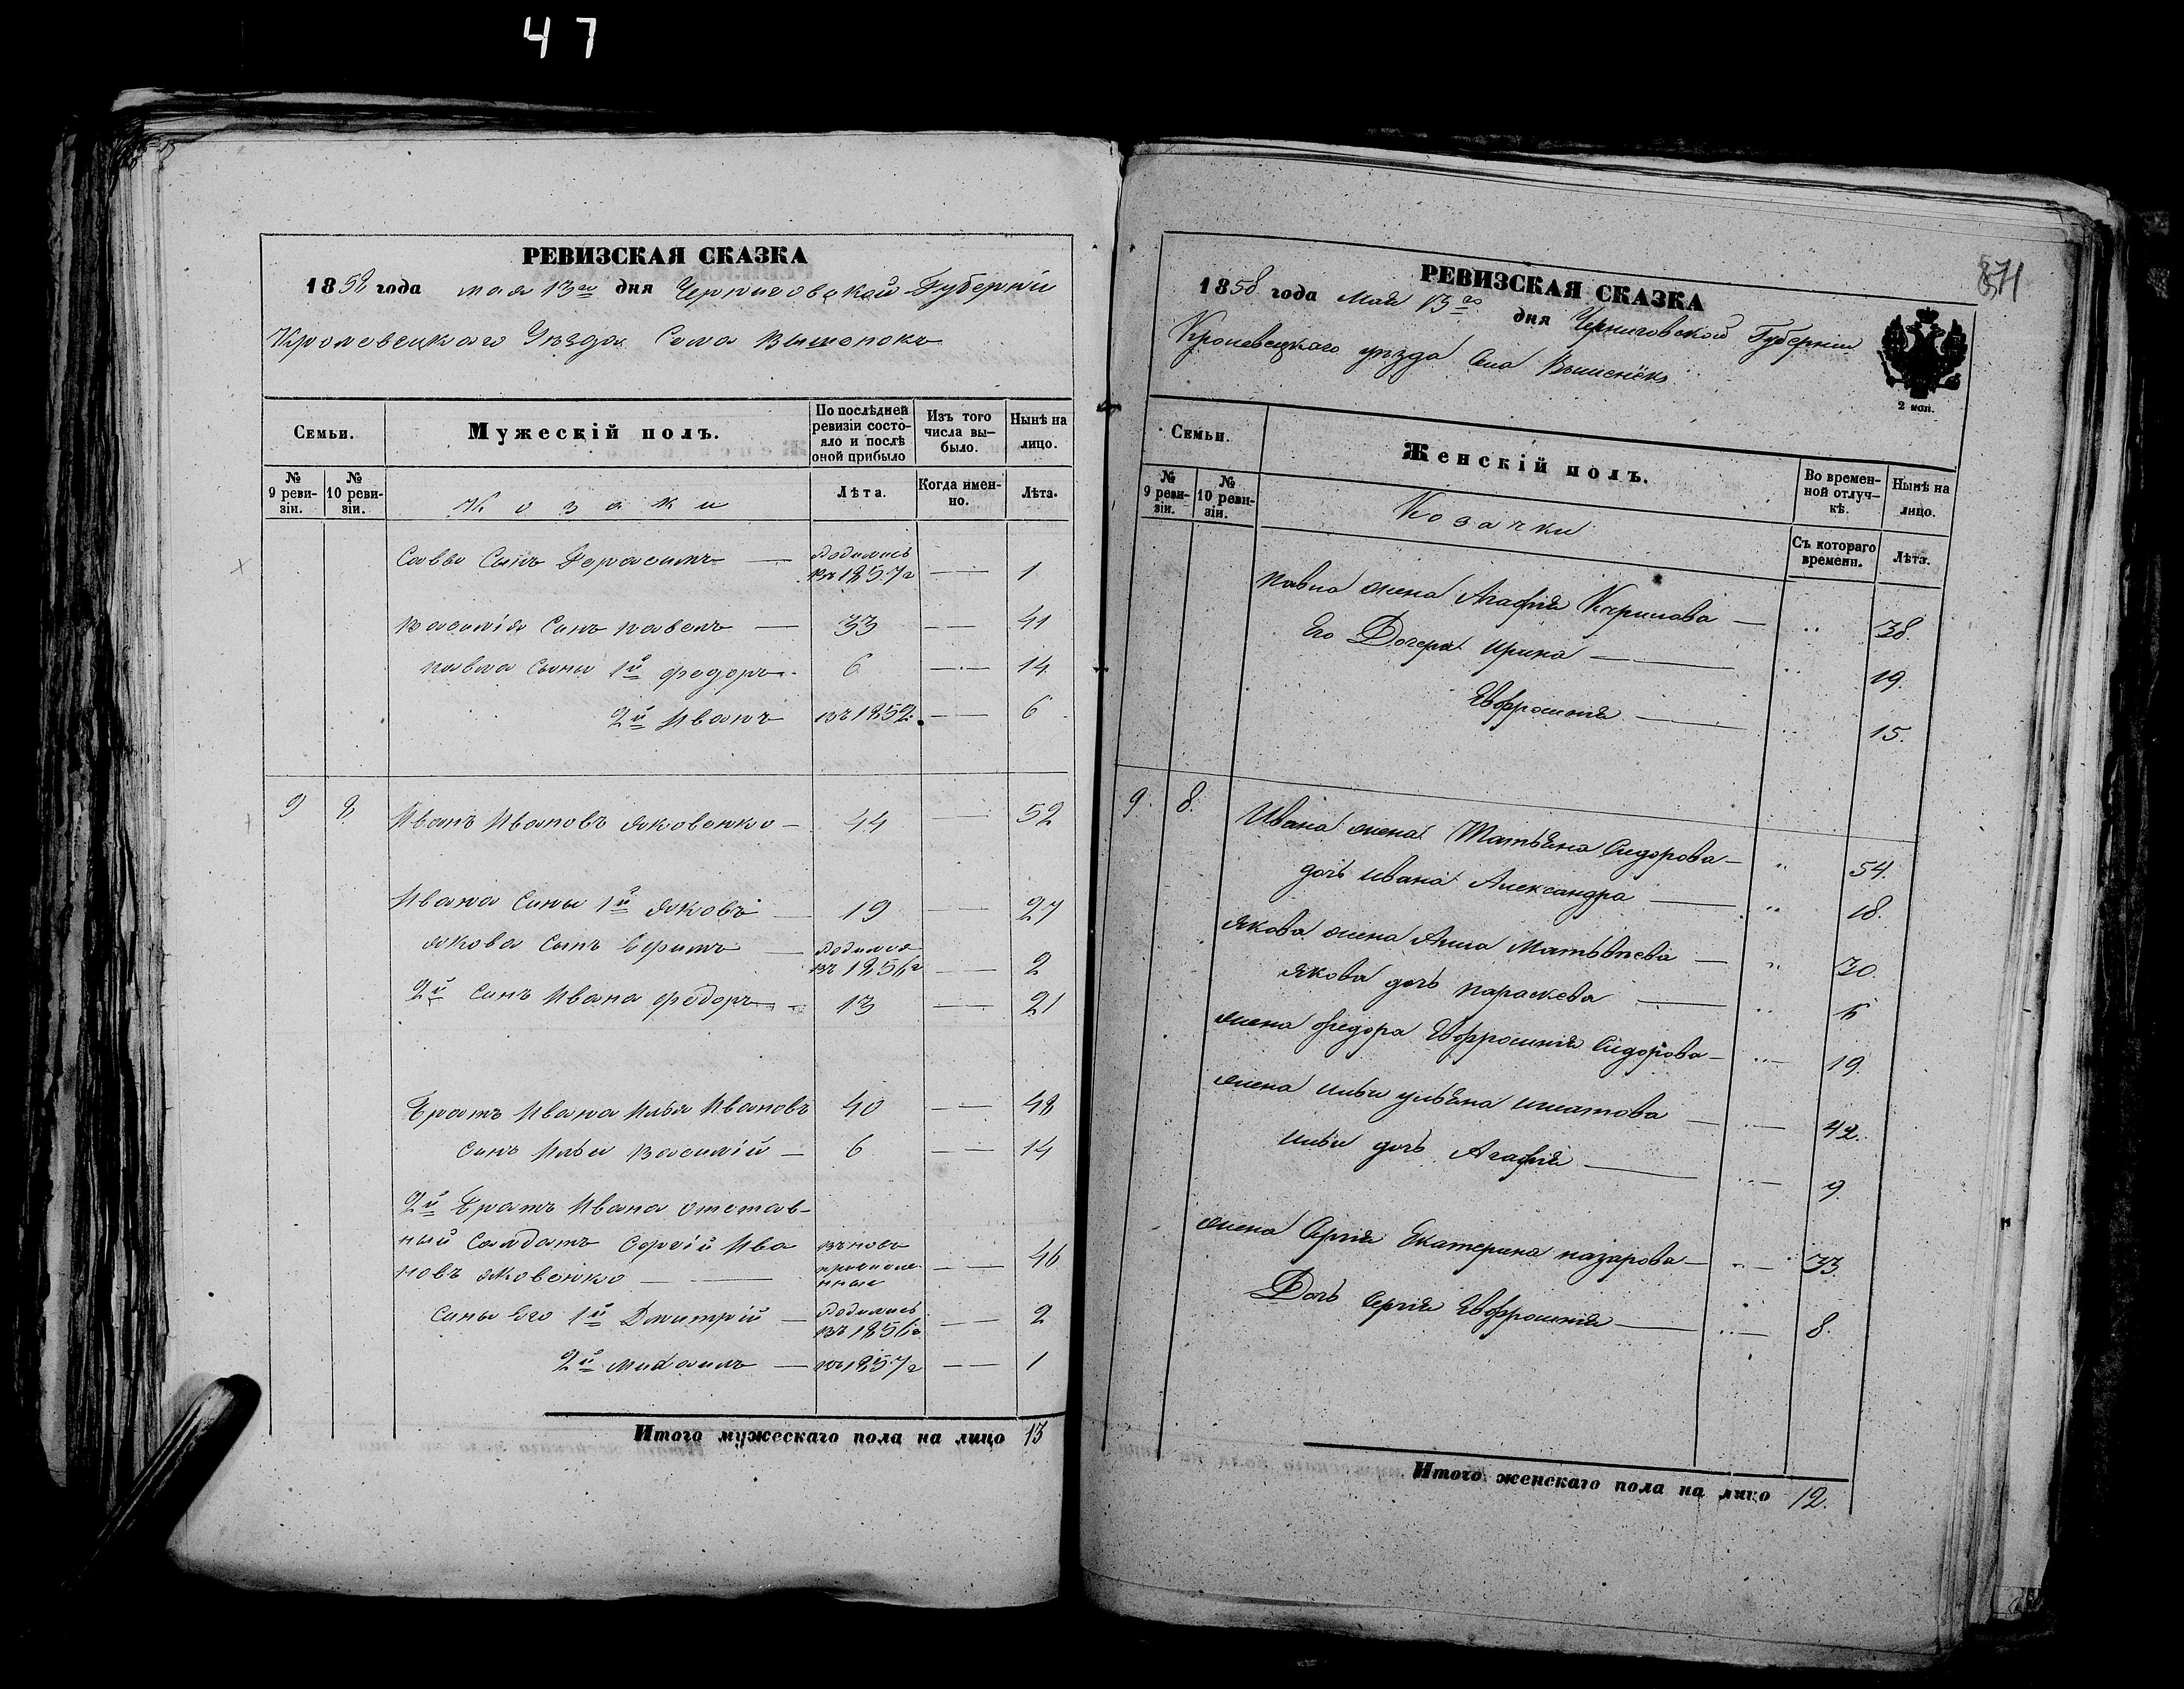 47
РЕВИЗСКАЯ СКАЗКА
1858 года мая 13го дня Черниговской Губернiи
Кролевецкаго Уѣзда Села Вишенокъ
Семьи.
Мужескій полъ.
По послѣдней ревизіи состояло и послѣ оной прибыло
Изъ того числа выбыло.
Нынѣ на лицо.
№ 9 ревизіи.
№ 10 ревизіи.
Козаки
Лѣта.
Когда именно.
Лѣта.
Саввы Сынъ Герасимъ — родились въ 1857г — 1
Василія Сынъ павелъ — 33 — 41
павла Сыны 1й федоръ 6 — 14
2й Иванъ въ 1852 — 6
9 8 Иванъ Ивановъ Яковенко — 44 — 52
Ивана Сыны 1й Яковъ — 19 — 27
Якова Сынъ Ефимъ — родился въ 1856г — 2
2й Сынъ Ивана федоръ 13 — 21
Братъ Ивана Илья Ивановъ 40 — 48
сынъ Ильи Василій — 6 — 14
2й Братъ Ивана отставный Салдатъ Сергій Ивановъ Яковенко — вновь — 46
сыны Его 1й Дмитрій — родились въ 1856г — 2
2й михаилъ — въ 1857г — 1
Итого мужескаго пола на лицо 13
871
РЕВИЗСКАЯ СКАЗКА
1858 года Мая 13го дня Черниговской Губернiи
Кролевецкаго уѣзда Села Вишенёкъ
2 коп.
Семьи.
Женскій полъ.
Во временной отлучкѣ.
Нынѣ на лицо.
№ 9 ревизіи.
№ 10 ревизіи.
Козачки
Съ котораго времени.
Лѣта.
павла жена Агафія Кирилова — 38.
Его Дочери Ирина — 19.
Евфросинія — 15.
9. 8. Ивана жена Татьяна Сидорова — 54.
дочь ивана Александра — 18.
Якова жена Анна Матьвѣева — 30.
Якова дочь параскева — 6
жена федора Евфросинія Сидорова — 19.
жена ильи ульяна игнатова — 42.
ильи дочь Агафія — 9.
жена Сергія Екатерина назарова — 33.
Дочь Сергія Евфросинія — 8.
Итого женскаго пола на лицо 12.